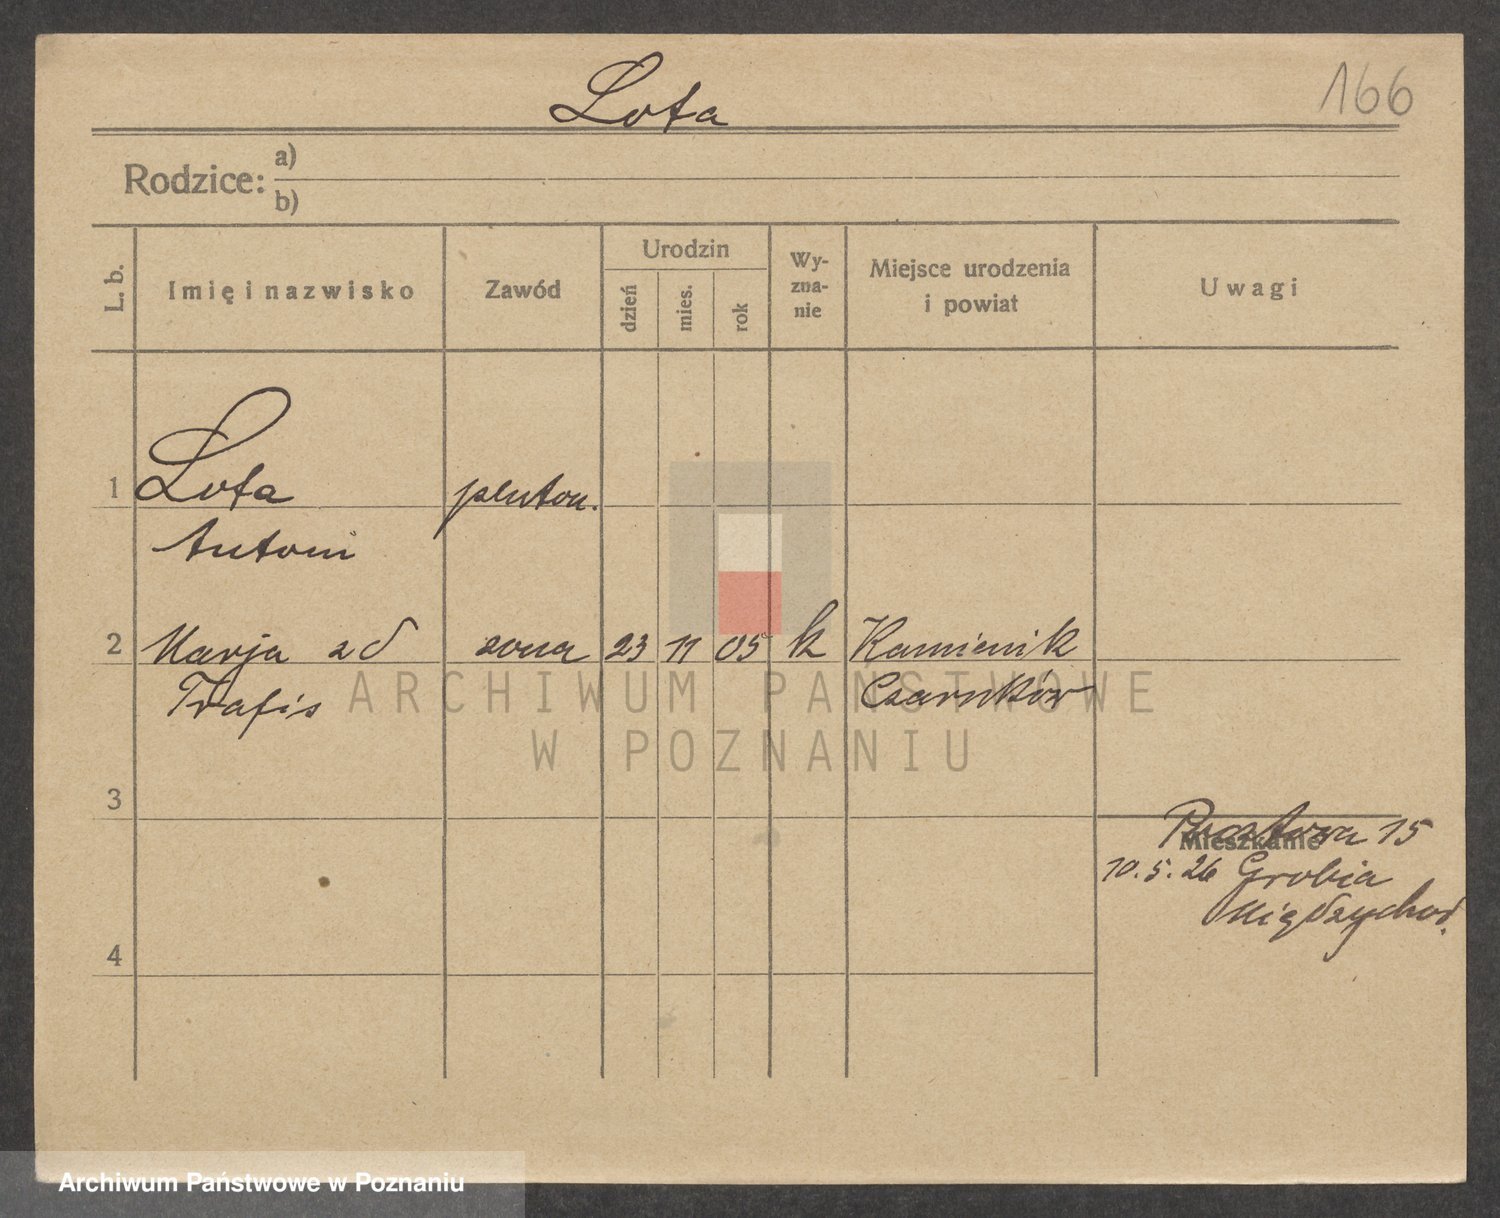 Lota
166
Rodzice:
a)
b)
L. b.
Imię i nazwisko
Zawód
Urodzin
dzień
mies.
rok
Wy-
zna-
nie
Miejsce urodzenia
i powiat
Uwagi
1 Lota pluton.
Antoni
2 Marja zd żona 23 11 05 k Kamienik
Trafis Czarnków
ARCHIWUM PAŃSTWOWE
W POZNANIU
3
Mieszkanie
15
10.5.26 Grobia
Międzychod.
4
Archiwum Państwowe w Poznaniu